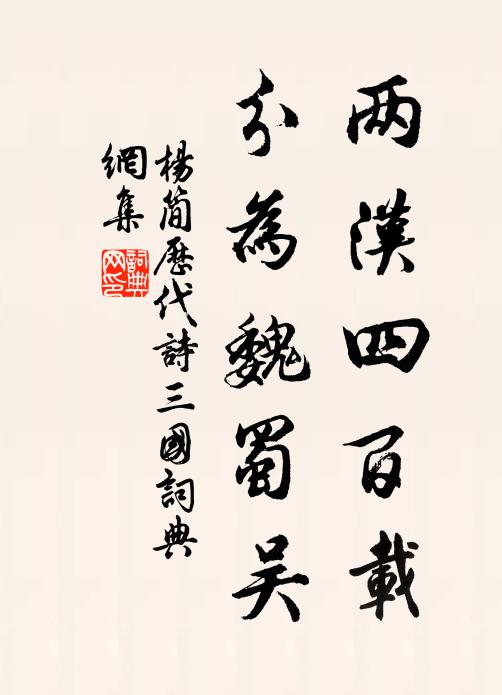 两漢四百載
分為魏蜀吴
楊简歷代詩三國詞典
網集
詞典
网印